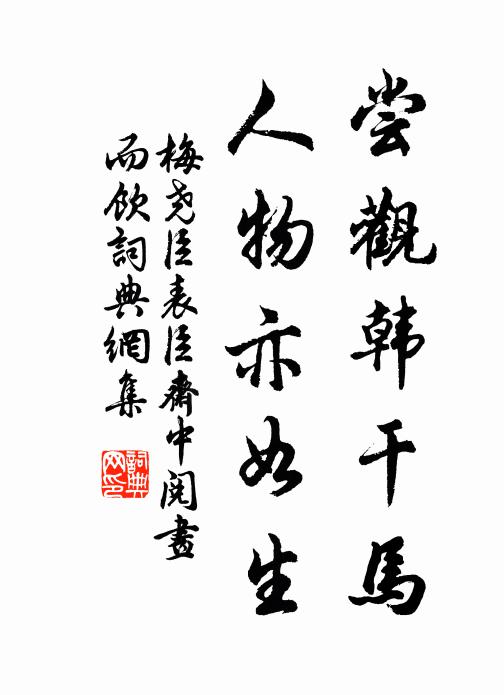 尝觀韩干馬
人物亦如生
梅尧臣表臣齋中閱畫
而飲詞典網集
詞典网印